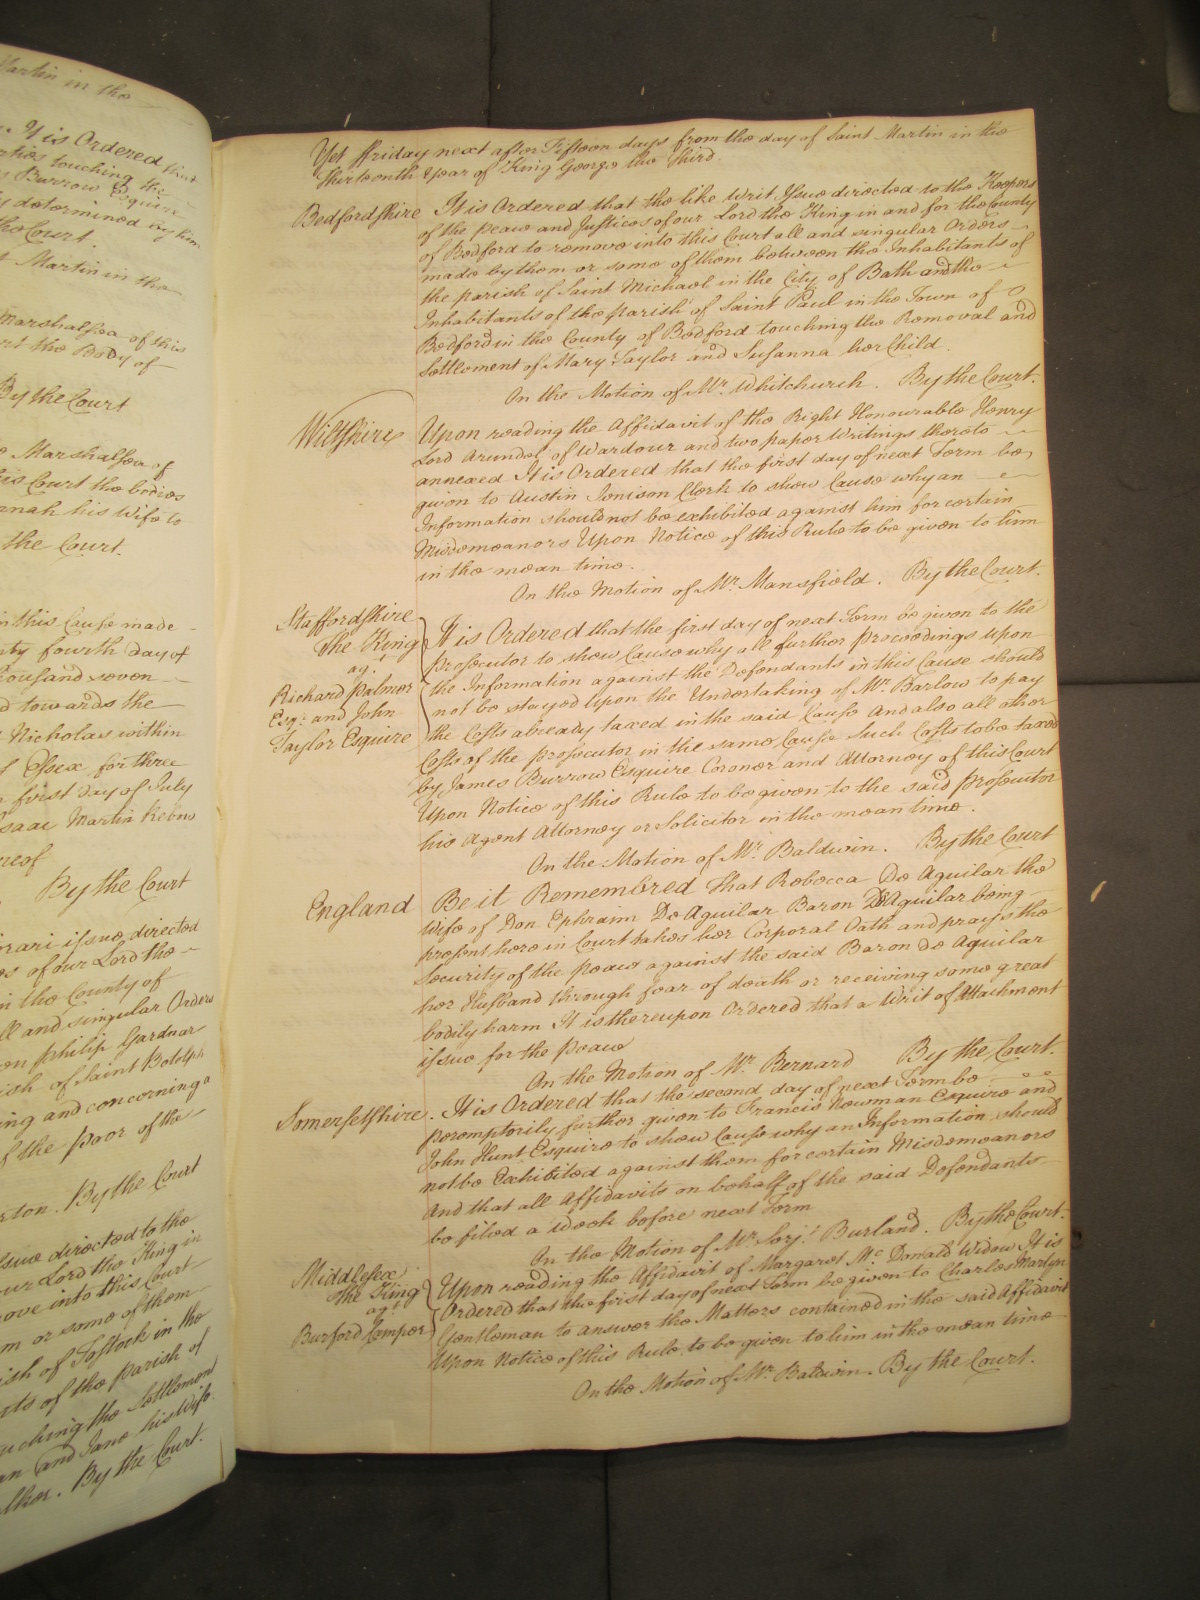 Martin in the
It is Ordered that
parties touching the
s Burrow Esquire
determined by him
the Court.
t Martin in the
Marshalsea of this
rt the Body of
By the Court
e Marshalsea of
his Court the bodies
annah his Wife to
the Court.
in this Cause made
nty fourth day of
housand seven
d towards the
Nicholas within
f Essex for three
first day of July
saac Martin Rebow
reof
By the Court
orari issue directed
es of our Lord the
in the County of
ll and singular Orders
on Philip Gardner
ish of Saint Botolph
ing and concerning a
f the poor of the
rton. By the Court
Issue directed to the
our Lord the King in
ove into this Court
m or some of them
ish of Tostock in the
nts of the parish of
uching the Settlement
an and Jane his Wife
lker. By the Court.
Yet ffriday next after Fifteen days from the day of Saint Martin in the
Thirteenth Year of King George the Third.
Bedfordshire It is Ordered that the like Writ Issue directed to the Keepers
of the peace and Justices of our Lord the King in and for the County
of Bedford to remove into this Court all and singular Orders
made by them or some of them between the Inhabitants of
the parish of Saint Michael in the City of Bath and the
Inhabitants of the parish of Saint Paul in the Town of
Bedford in the County of Bedford touching the Removal and
Settlement of Mary Taylor and Susanna her Child.
On the Motion of Mr. Whitchurch. By the Court.
Wiltshire Upon reading the Affidavit of the Right Honourable Henry
Lord Arundel of Wardour and two paper Writings thereto
annexed It is Ordered that the first day of next Term be
given to Austin Jenison Clerk to shew Cause why an
Information should not be exhibited against him for certain
Misdemeanors Upon Notice of this Rule to be given to him
in the mean time.
On the Motion of Mr. Mansfield. By the Court.
Staffordshire
The King
agt.
Richard Palmer
Esqr. and John
Taylor Esquire
It is Ordered that the first day of next Term be given to the
prosecutor to shew Cause why all further proceedings upon
the Information against the Defendants in this Cause should
not be stayed upon the Undertaking of Mr. Barlow to pay
the Costs already taxed in the said Cause And also all other
Costs of the prosecutor in the same Cause Such Costs to be taxed
by James Burrow Esquire Coroner and Attorney of this Court
Upon Notice of this Rule to be given to the said prosecutor
his Agent Attorney or Solicitor in the mean time.
On the Motion of Mr. Baldwin. By the Court
England Be it Remembred That Rebecca De Aguilar the
Wife of Don Ephraim De Aguilar Baron De Aguilar being
present here in Court takes her Corporal Oath and prays the
Security of the peace against the said Baron De Aguilar
her Husband through fear of death or receiving some great
bodily harm It is thereupon Ordered that a Writ of Attachment
issue for the peace
On the Motion of Mr. Bernard By the Court.
Somersetshire. It is Ordered that the second day of next Term be
peremptorily further given to Francis Newman Esquire and
John Hunt Esquire to shew Cause why an Information should
not be Exhibited against them for certain Misdemeanors
And that all Affidavits on behalf of the said Defendants
be filed a Week before next Term
On the Motion of Mr. Serjt. Burland. By the Court.
Middlesex
The King
agt.
Burford Camper
Upon reading the Affidavit of Margaret Mc.Donald Widow It is
Ordered that the first day of next Term be given to Charles Martyn
Gentleman to answer the Matters contained in the said Affidavit
Upon Notice of this Rule to be given to him in the mean time
On the Motion of Mr. Baldwin. By the Court.